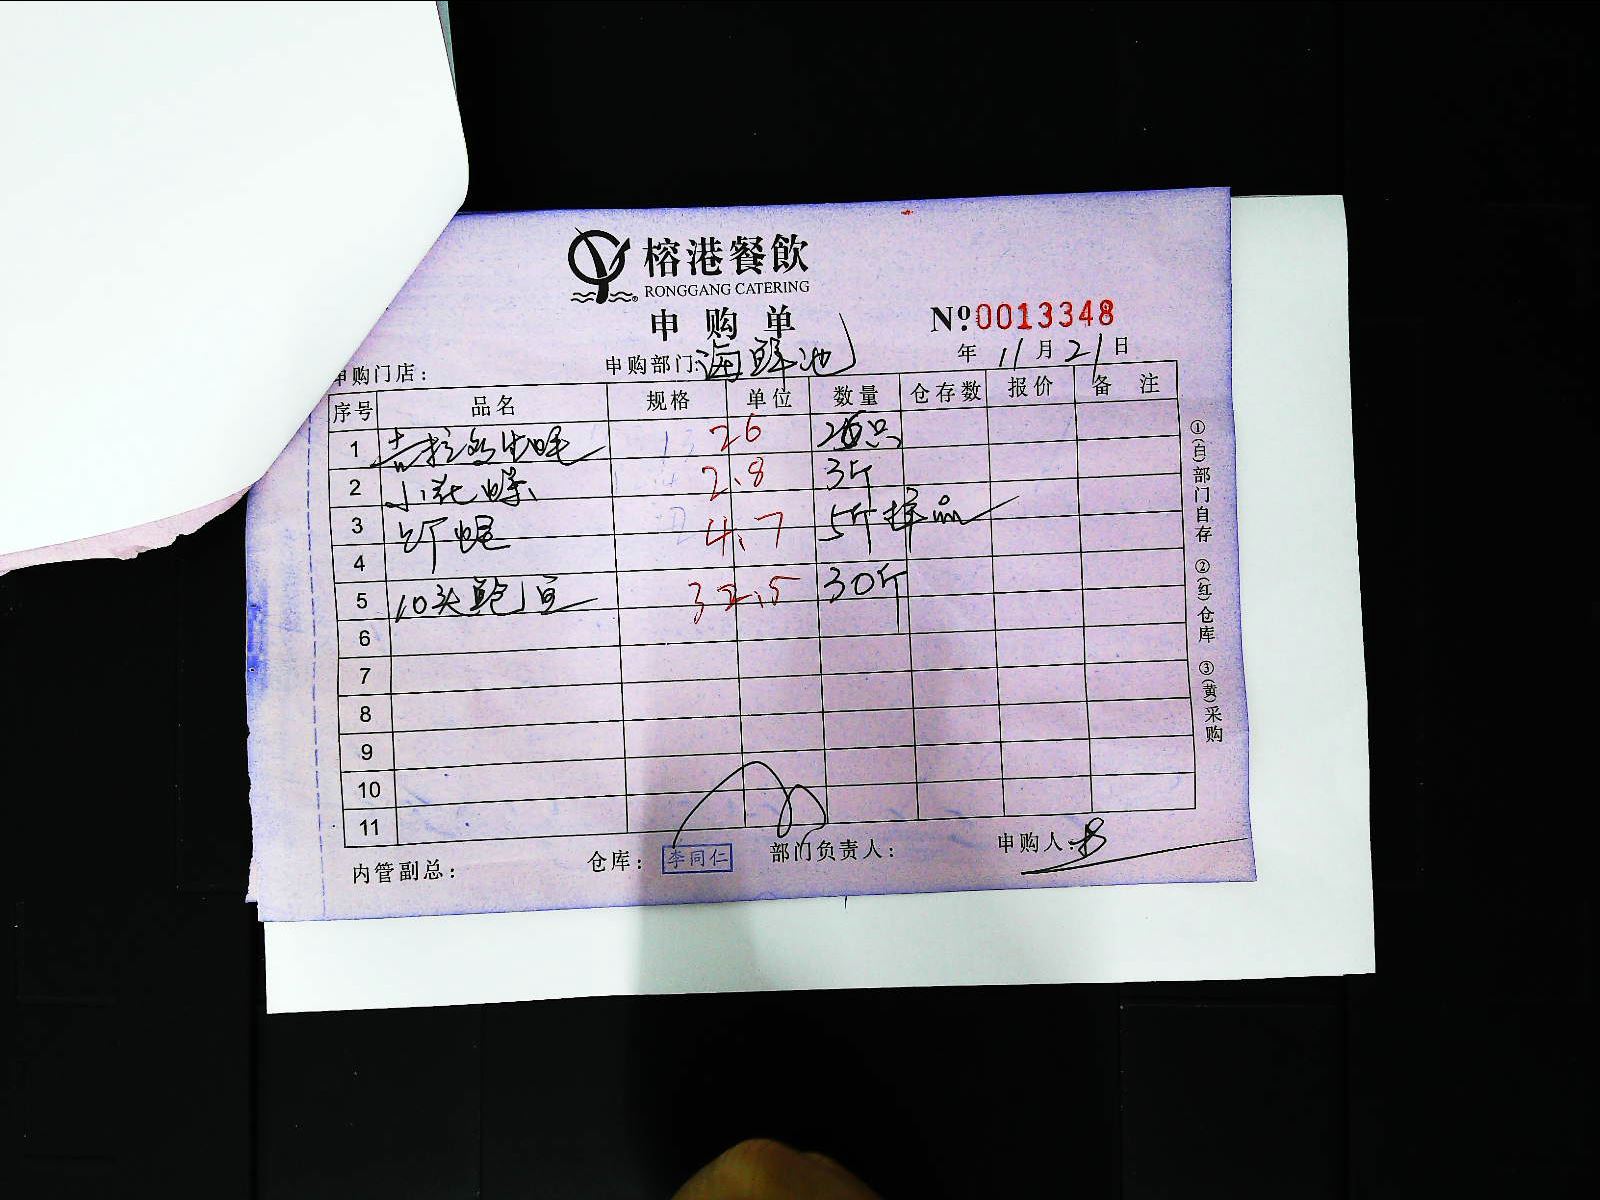 榕港餐飲
RONGGANG CATERING
申购单
Nº0013348
申购门店：
申购部门：海鲜池
年 11月21日
序号 品名 规格 单位 数量 仓存数 报价 备注
1 吉拉多生蚝 26 26只
2 小花螺 2.8 3斤
3 4.7 5斤 样品
4
5 10头鲍 32.5 30斤
6
7
8
9
10
11
①(白)部门自存 ②(红)仓库 ③(黄)采购
内管副总：
仓库：李同仁
部门负责人：
申购人：